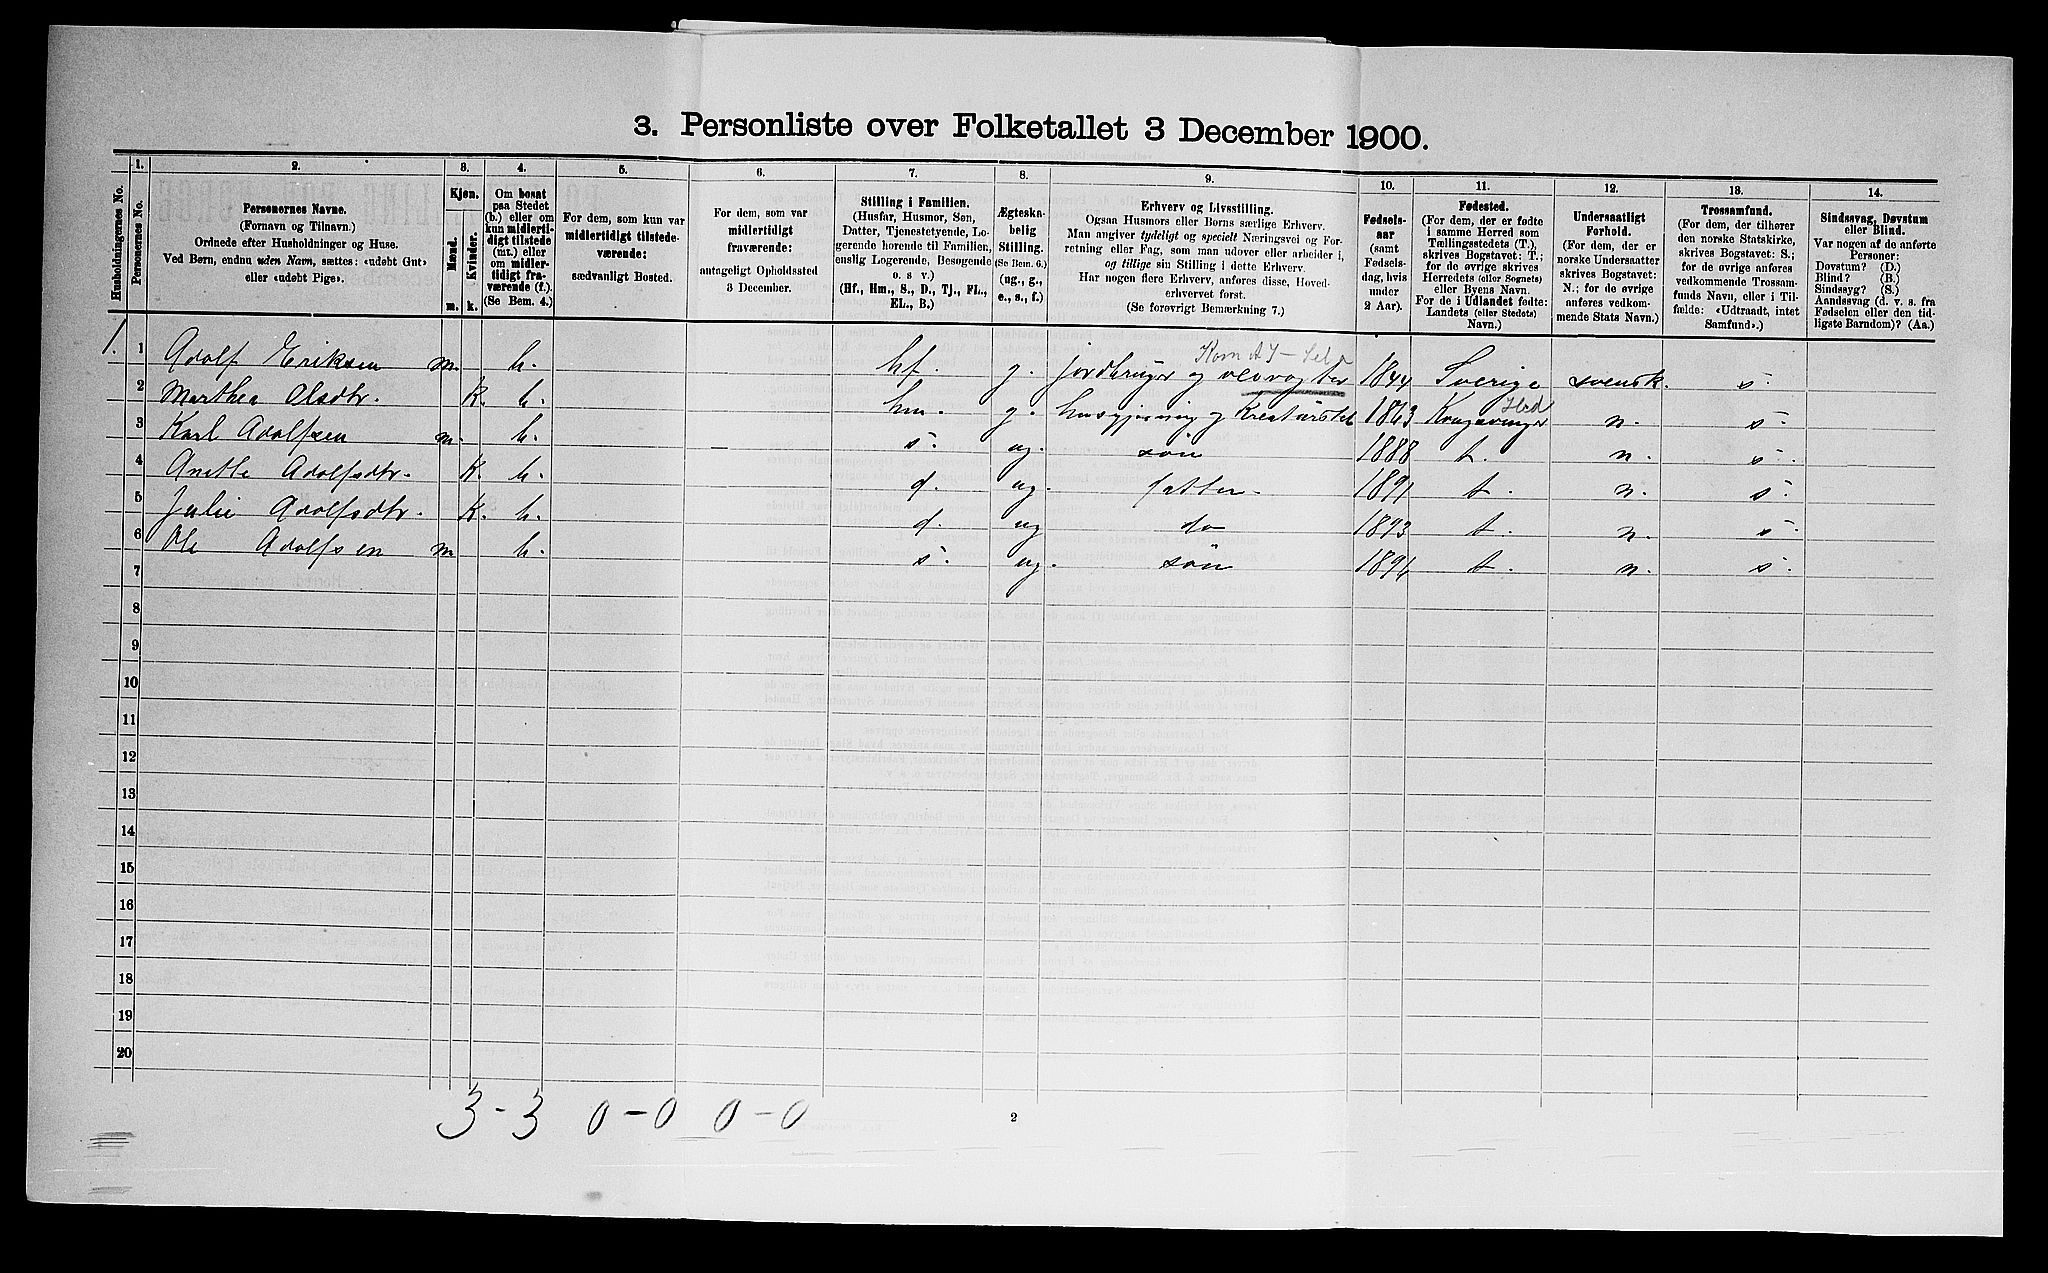 3. Personliste over Folketallet 3 December 1900.
Husholdningernes No.
1.
Personernes No.
2.
Personernes Navne.
(Fornavn og Tilnavn.)
Ordnede efter Husholdninger og Huse.
Ved Børn, endnu uden Navn, sættes: «udøbt Gut»
eller «udøbt Pige».
3.
Kjøn.
Mænd.
Kvinder.
m. k.
4.
Om bosat
paa Stedet
(b.) eller om
kun midler-
tidigt tilstede
(mt.) eller
om midler-
tidigt fra-
værende (f.).
(Se Bem. 4.)
5.
For dem, som kun var
midlertidigt tilstede-
værende:
sædvanligt Bosted.
6.
For dem, som var
midlertidigt
fraværende:
antageligt Opholdssted
3 December.
7.
Stilling i Familien.
(Husfar, Husmor, Søn,
Datter, Tjenestetyende, Lo-
gerende hørende til Familien,
enslig Logerende, Besøgende
o. s v.)
(Hf., Hm., S., D., Tj., FL.,
EL., B.)
8.
Ægteska-
belig
Stilling.
(Se Bem. 6.)
(ug., g.,
e., s., f.)
9.
Erhverv og Livsstilling.
Ogsaa Husmors eller Børns særlige Erhverv.
Man angiver tydeligt og specielt Næringsvei og For-
retning eller Fag, som man udøver eller arbeider i,
og tillige sin Stilling i dette Erhverv.
Har nogen flere Erhverv, anføres disse, Hoved-
erhvervet først.
(Se forøvrigt Bemærkning 7.)
10.
Fødsels-
aar
(samt
Fødsels-
dag, hvis
under
2 Aar).
11.
Fødested.
(For dem, der er fødte
i samme Herred som
Tællingsstedets (T.),
skrives Bogstavet: T.;
for de øvrige skrives
Herredets (eller Sognets)
eller Byens Navn.
For de i Udlandet fødte:
Landets (eller Stedets)
Navn.)
12.
Undersaatligt
Forhold.
(For dem, der er
norske Undersaatter
skrives Bogstavet:
N.; for de øvrige
anføres vedkom-
mende Stats Navn.)
13.
Trossamfund.
(For dem, der tilhører
den norske Statskirke,
skrives Bogstavet: S.;
for de øvrige anføres
vedkommende Trossam-
funds Navn, eller i Til-
fælde: «Udtraadt, intet
Samfund».)
14.
Sindssvag, Døvstum
eller Blind.
Var nogen af de anførte
Personer:
Døvstum? (D.)
Blind? (B.)
Sindssyg? (S.)
Aandssvag (d. v. s. fra
Fødselen eller den tid-
ligste Barndom)? (Aa.)
1. 1 Adolf Eriksen m. b. hf. g. jordbruger og 1844 Sverige svensk. s.
2 Marthea Olsdtr. K. b. hm. g. husgjerning og Kreaturstel 1863 Kongsvinger Hrd n. s.
3 Karl Adolfsen m. b. s. ug. søn 1888 t. n. s.
4 Anette Adolfsdtr. K. b. d. ug. datter 1891 t. n. s.
5 Julie Adolfsdtr. K. b. d. ug do 1893 t. n. s.
6 Ole Adolfsen m b. s. ug. søn 1896 t. n. s.
7
8
9
10
11
12
13
14
15
16
17
18
19
20
3-3 0-0 0-0
2